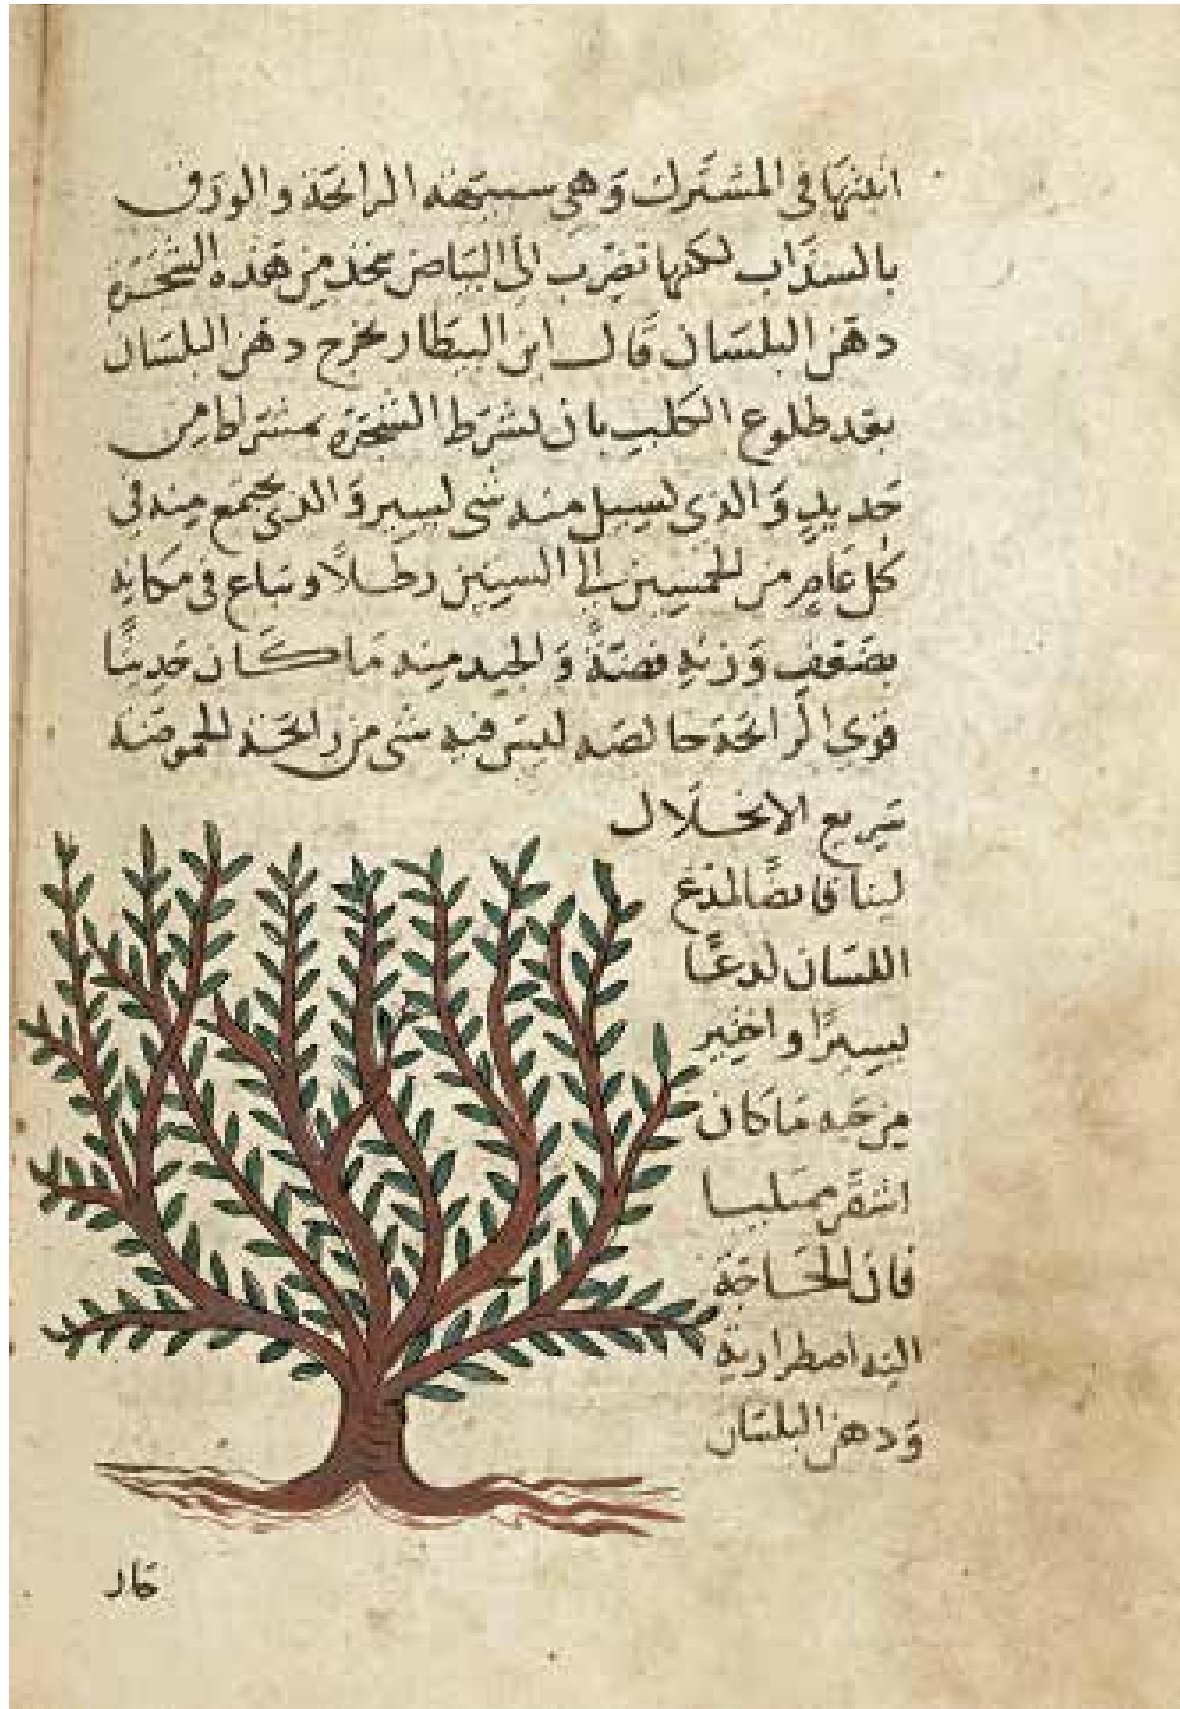 انبتها في المشترك وهي سبجفه الرائحة والورق
بالسذاب لكنها تضرب الى البياض يتخذ من هذه الشجرة
دهن البلسان قال ابن البيطار يخرج دهن البلسان
بعد طلوع الكلب بان تشرط الشجرة بمشراط من
حديد والذي يسيل منه شي يسير والذي يجتمع منه في
كل عام من الخمسين الى الستين رطلًا ويباع في مكانه
بضعف وزنه فضةً والجيد منه ما كان حديثًا
قوي الرائحة خالصه ليس فيه شي من رائحة الحموضة
سريع الانحلال
لينا قابضًا يلذع
اللسان لذعًا
يسيرًا واختير
من حبه ما كان
اشقر ممتليا
فان الحاجة
اليه اضطرارية
ودهن البلسان
حار